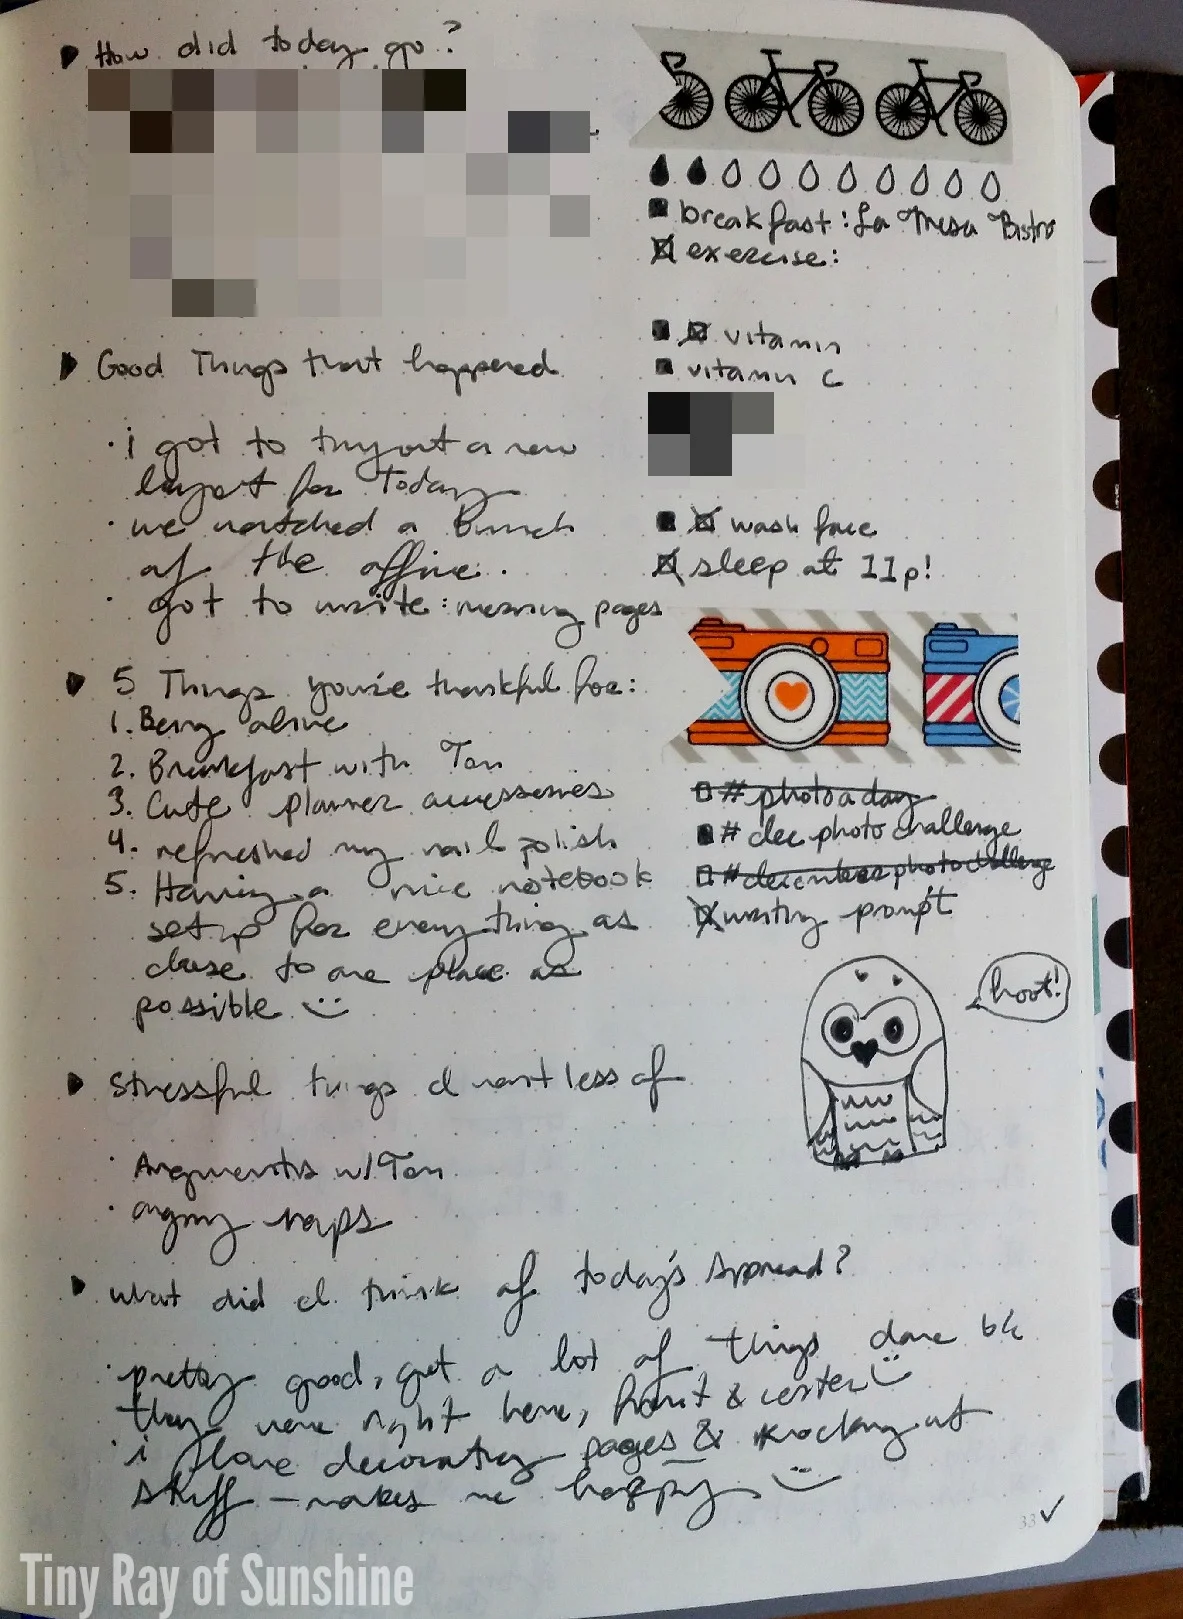 How did today go?
Good Things that happened
· i got to try out a new
layout for today
· we watched a bunch
of the office.
· got to write: morning pages
5 Things you're thankful for:
1. Being alive
2. Breakfast with Tan
3. Cute planner accessories
4. refreshed my nail polish
5. Having a nice notebook
set up for everything as
close to one place as
possible
Stressful things I want less of
· Arguments w/ Tan
· angry naps
What did I think of today's spread?
· pretty good, got a lot of things done bk
they were right here, front & center
· i love decorating pages & knocking out
stuff – makes me happy
breakfast: La Mesa Bistro
exercise:
vitamin
vitamin c
wash face
sleep at 11p!
#photoaday
#decphotochallenge
#decemberphotochallenge
writing prompt
hoot!
33
Tiny Ray of Sunshine